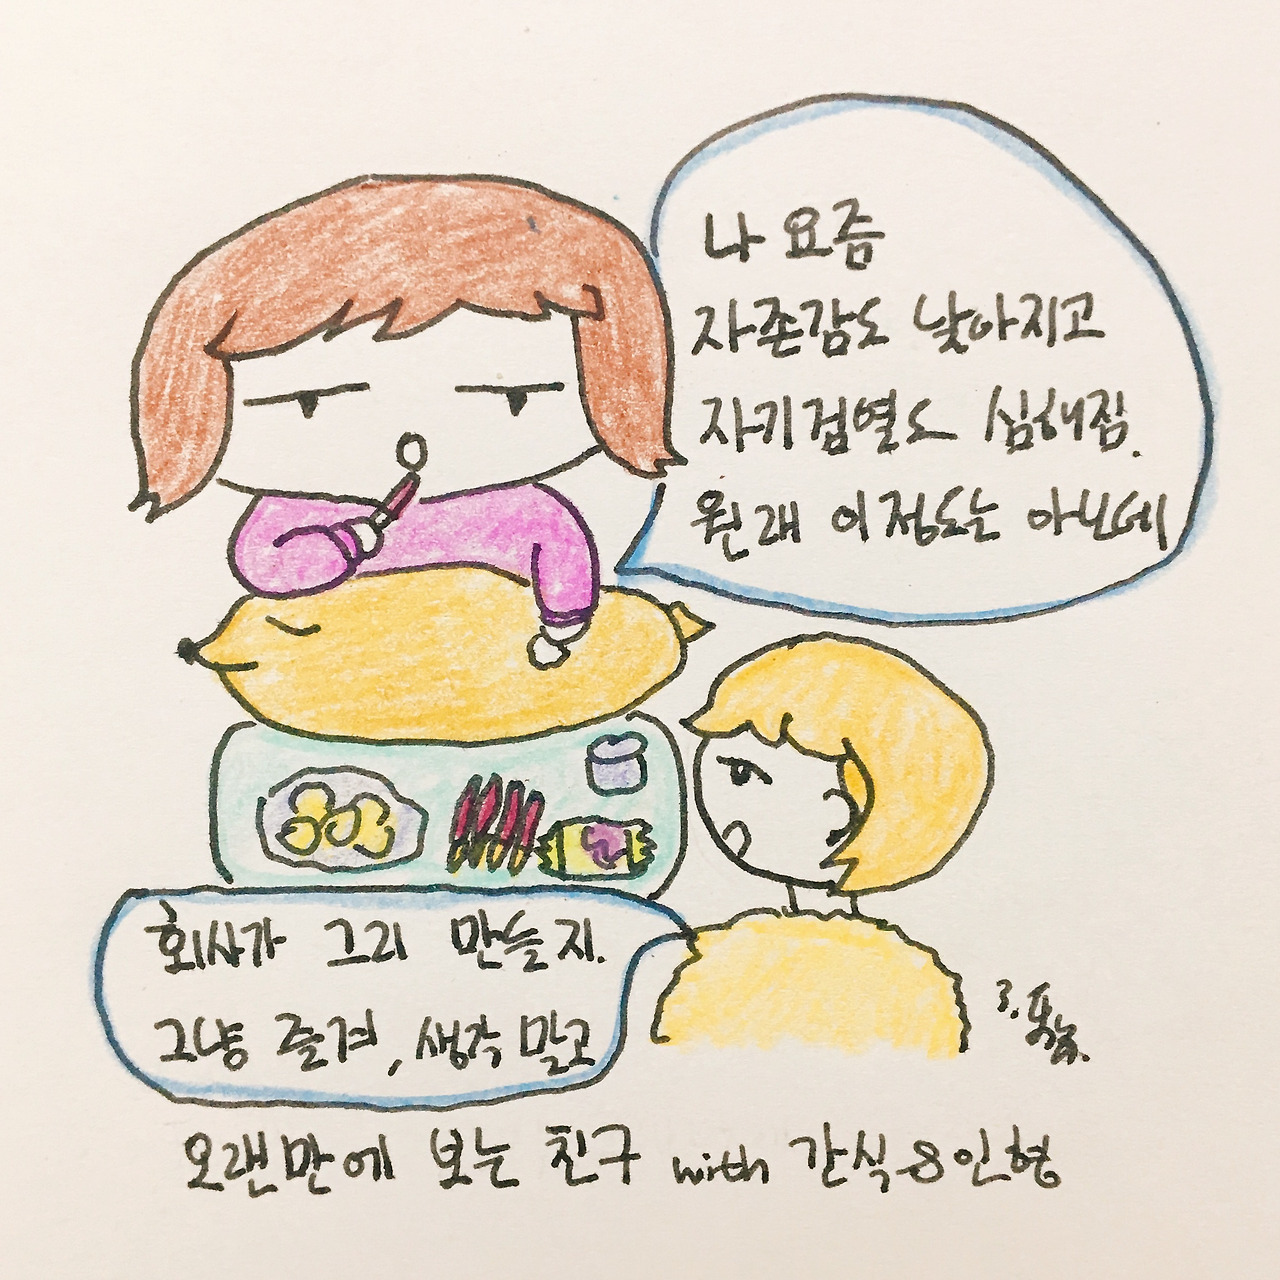 나 요즘
자존감도 낮아지고
자기검열도 심해짐.
원래 이정도는 아닌데
회사가 그리 만들지.
그냥 즐겨, 생각 말고
오랜만에 보는 친구 with 간식&인형